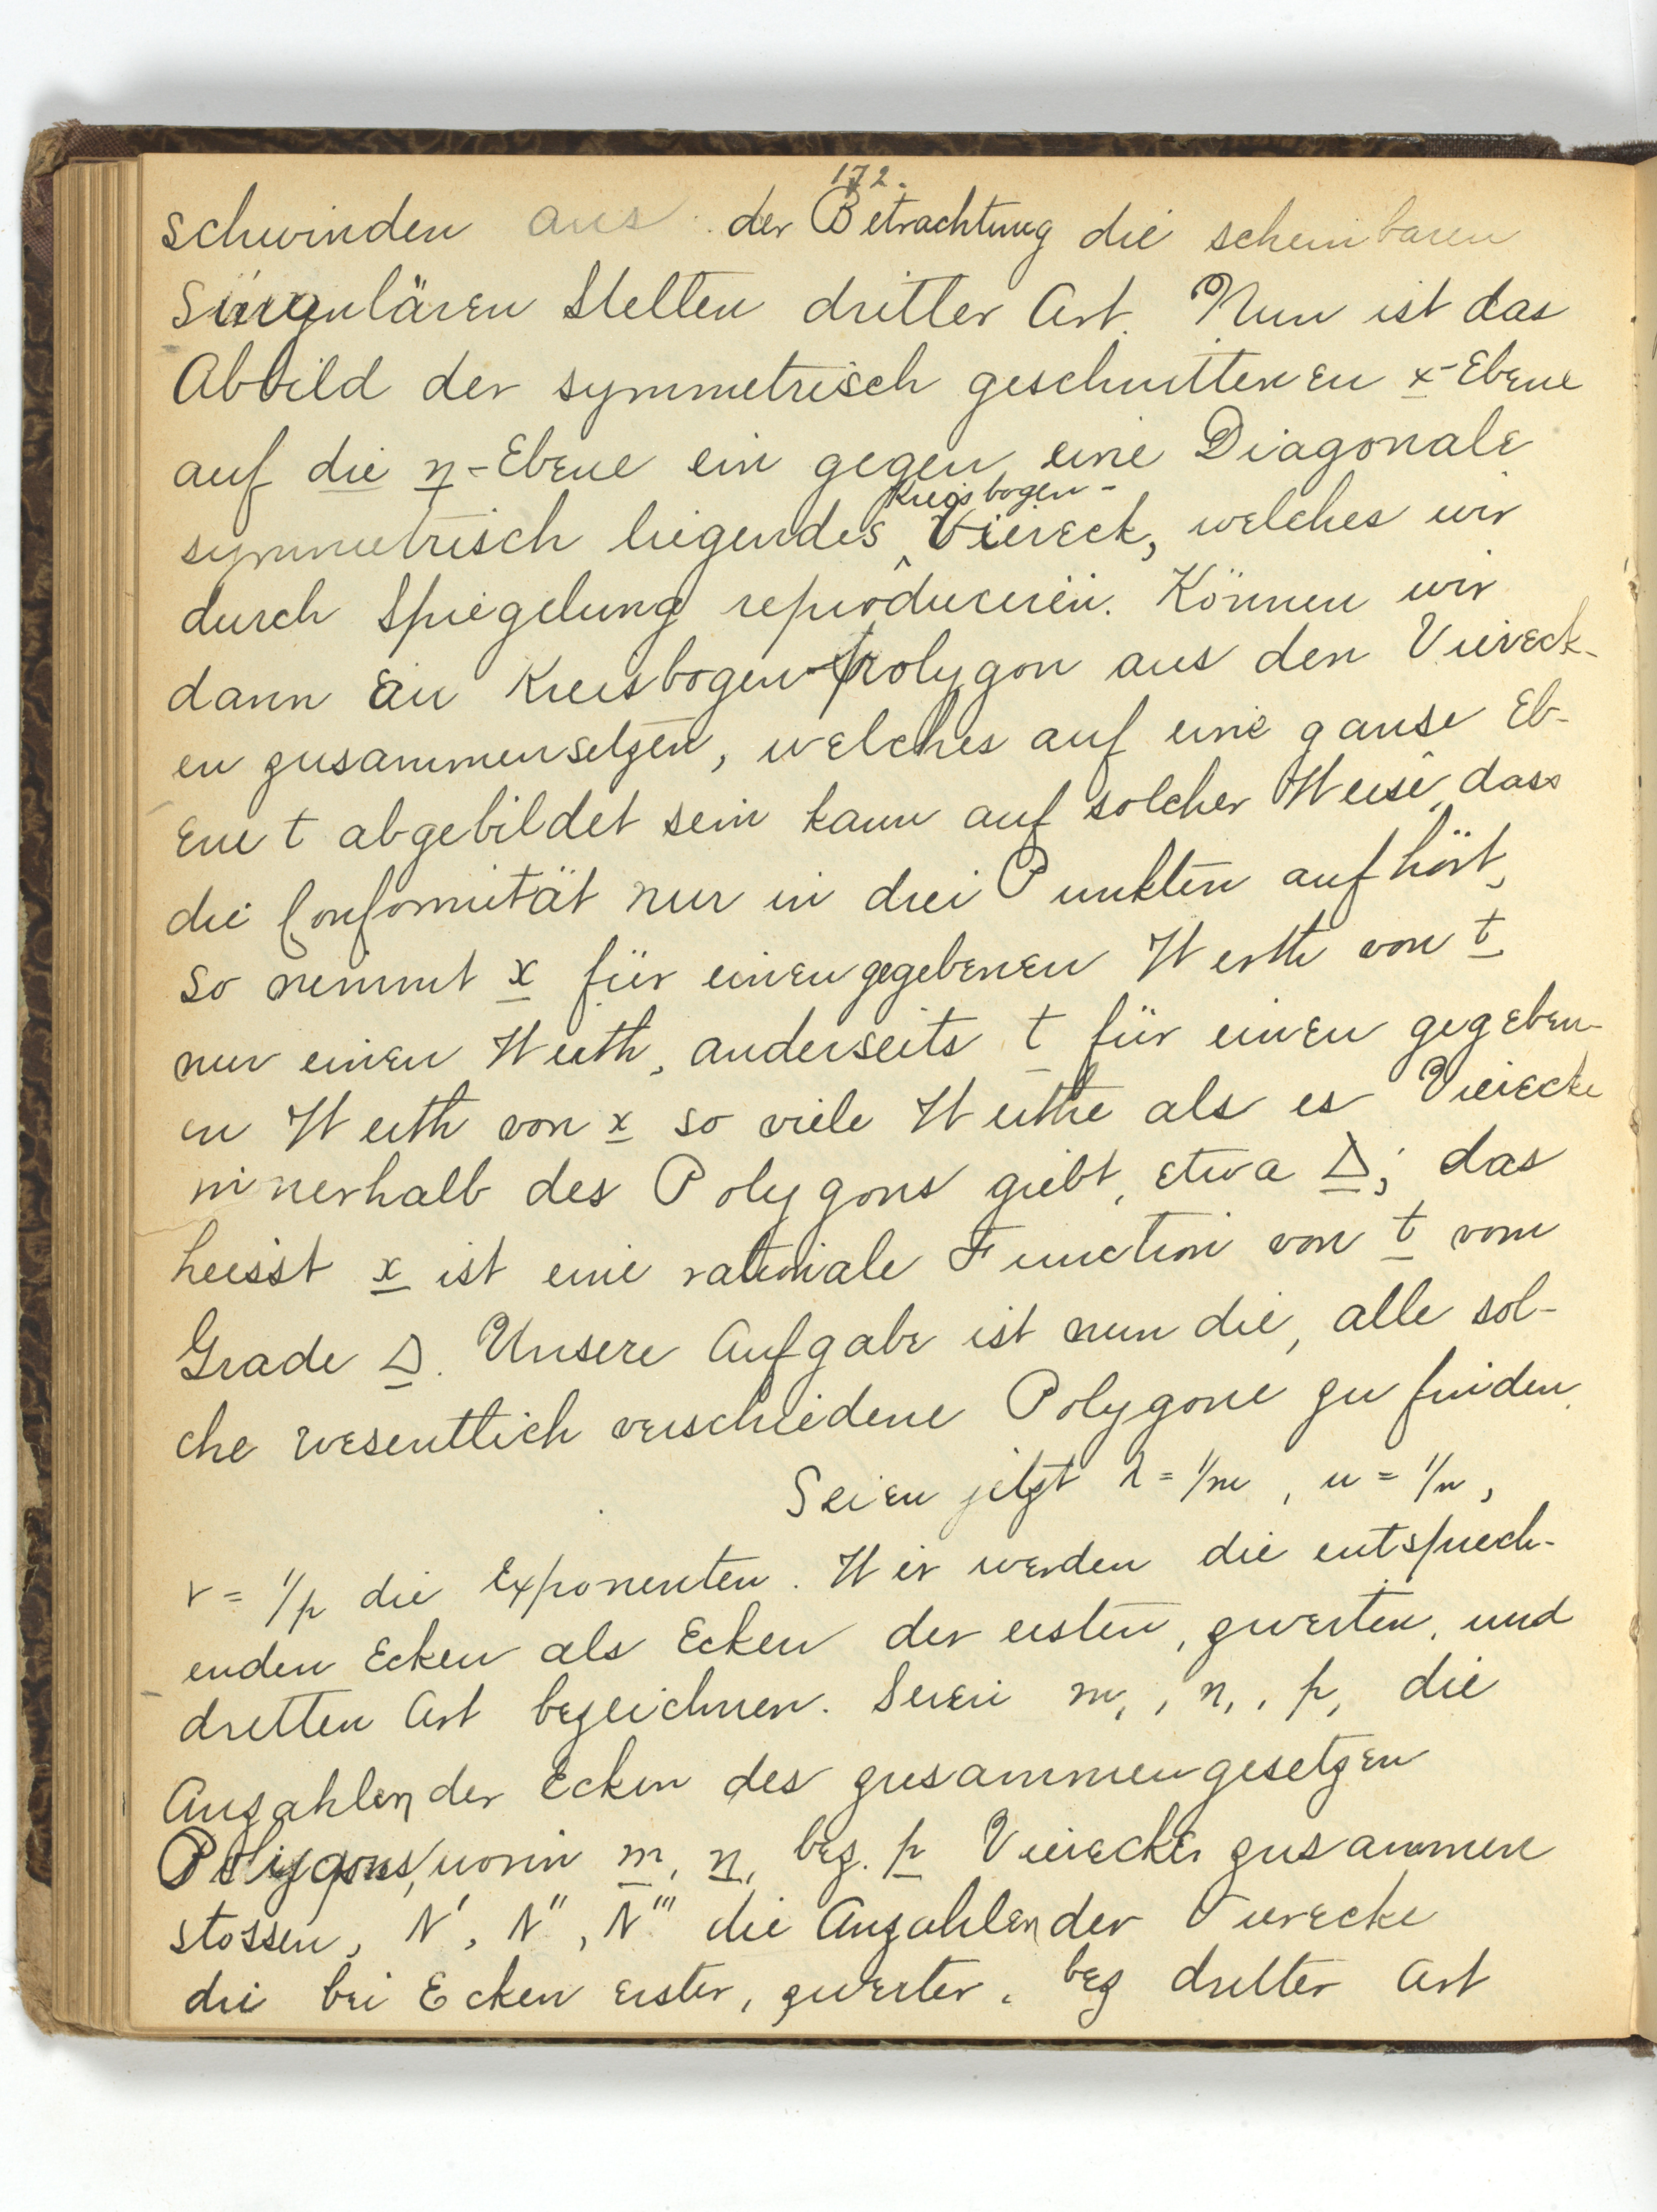 172.
schwinden aus der Betrachtung die scheinbaren
singulären Stellen dritter Art. Nun ist das
Abbild der symmetrisch geschnittenen x-Ebene
auf die η-Ebene ein gegen eine Diagonale
Kreisbogen-
symmetrisch liegendes Viereck, welches wir
durch Spiegelung reproduciren. Können wir
dann ein Kreisbogen-polygon aus den Viereck-
en zusammensetzen, welches auf eine ganse Eb-
ene t abgebildet sein kann auf solcher Weise, dass
die Conformität nur in drei Punkten aufhört,
so nimmt x für einen gegebenen Werth von t
nur einen Werth, anderseits t für einen gegeben-
en Werth von x so viele Werthe als es Vierecke
innerhalb des Polygons giebt, etwa Δ; das
heisst x ist eine rationale Function von t vom
Grade Δ. Unsere Aufgabe ist nun die, alle sol-
che wesentlich verschiedene Polygone zu finden.
Seien jetzt λ = 1/m, u = 1/n,
ν = 1/p die Exponenten. Wir werden die entsprech-
enden Ecken als Ecken der ersten, zweiten, und
dritten Art bezeichnen. Seien m₁, n₁, p₁ die
Anzahlen der Ecken des zusammengesetzen
Polygons, worin m, n, bez. p Vierecke zusammen
stossen, N', N'', N''' die Anzahlen der Vierecke
die bei Ecken erster, zweiter, bez dritter Art